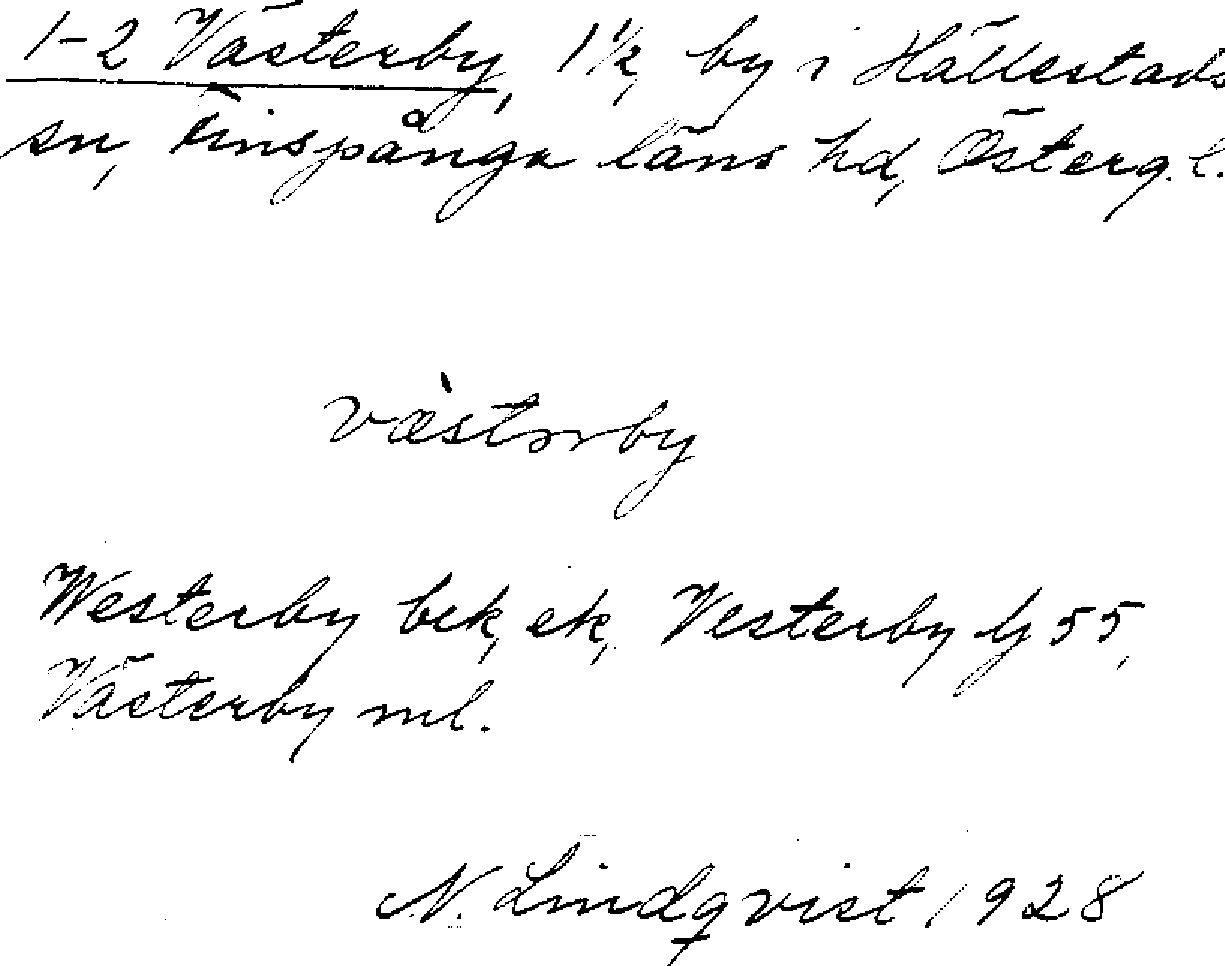 1-2 Västerby, 1 1/2, by i Hällestads
sn, Finspånga läns hd, Österg. l.
västərby
Westerby bek, ek, Vesterby Gj 55,
Västerby ml.
N. Lindqvist 1928